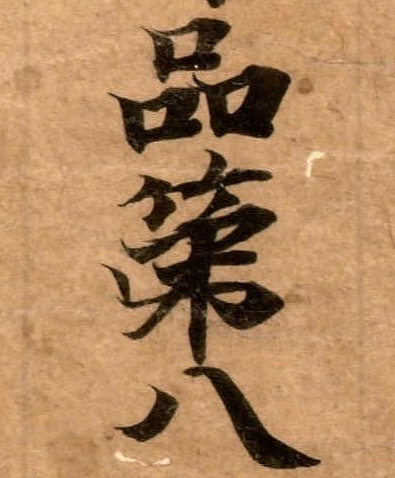 品第八